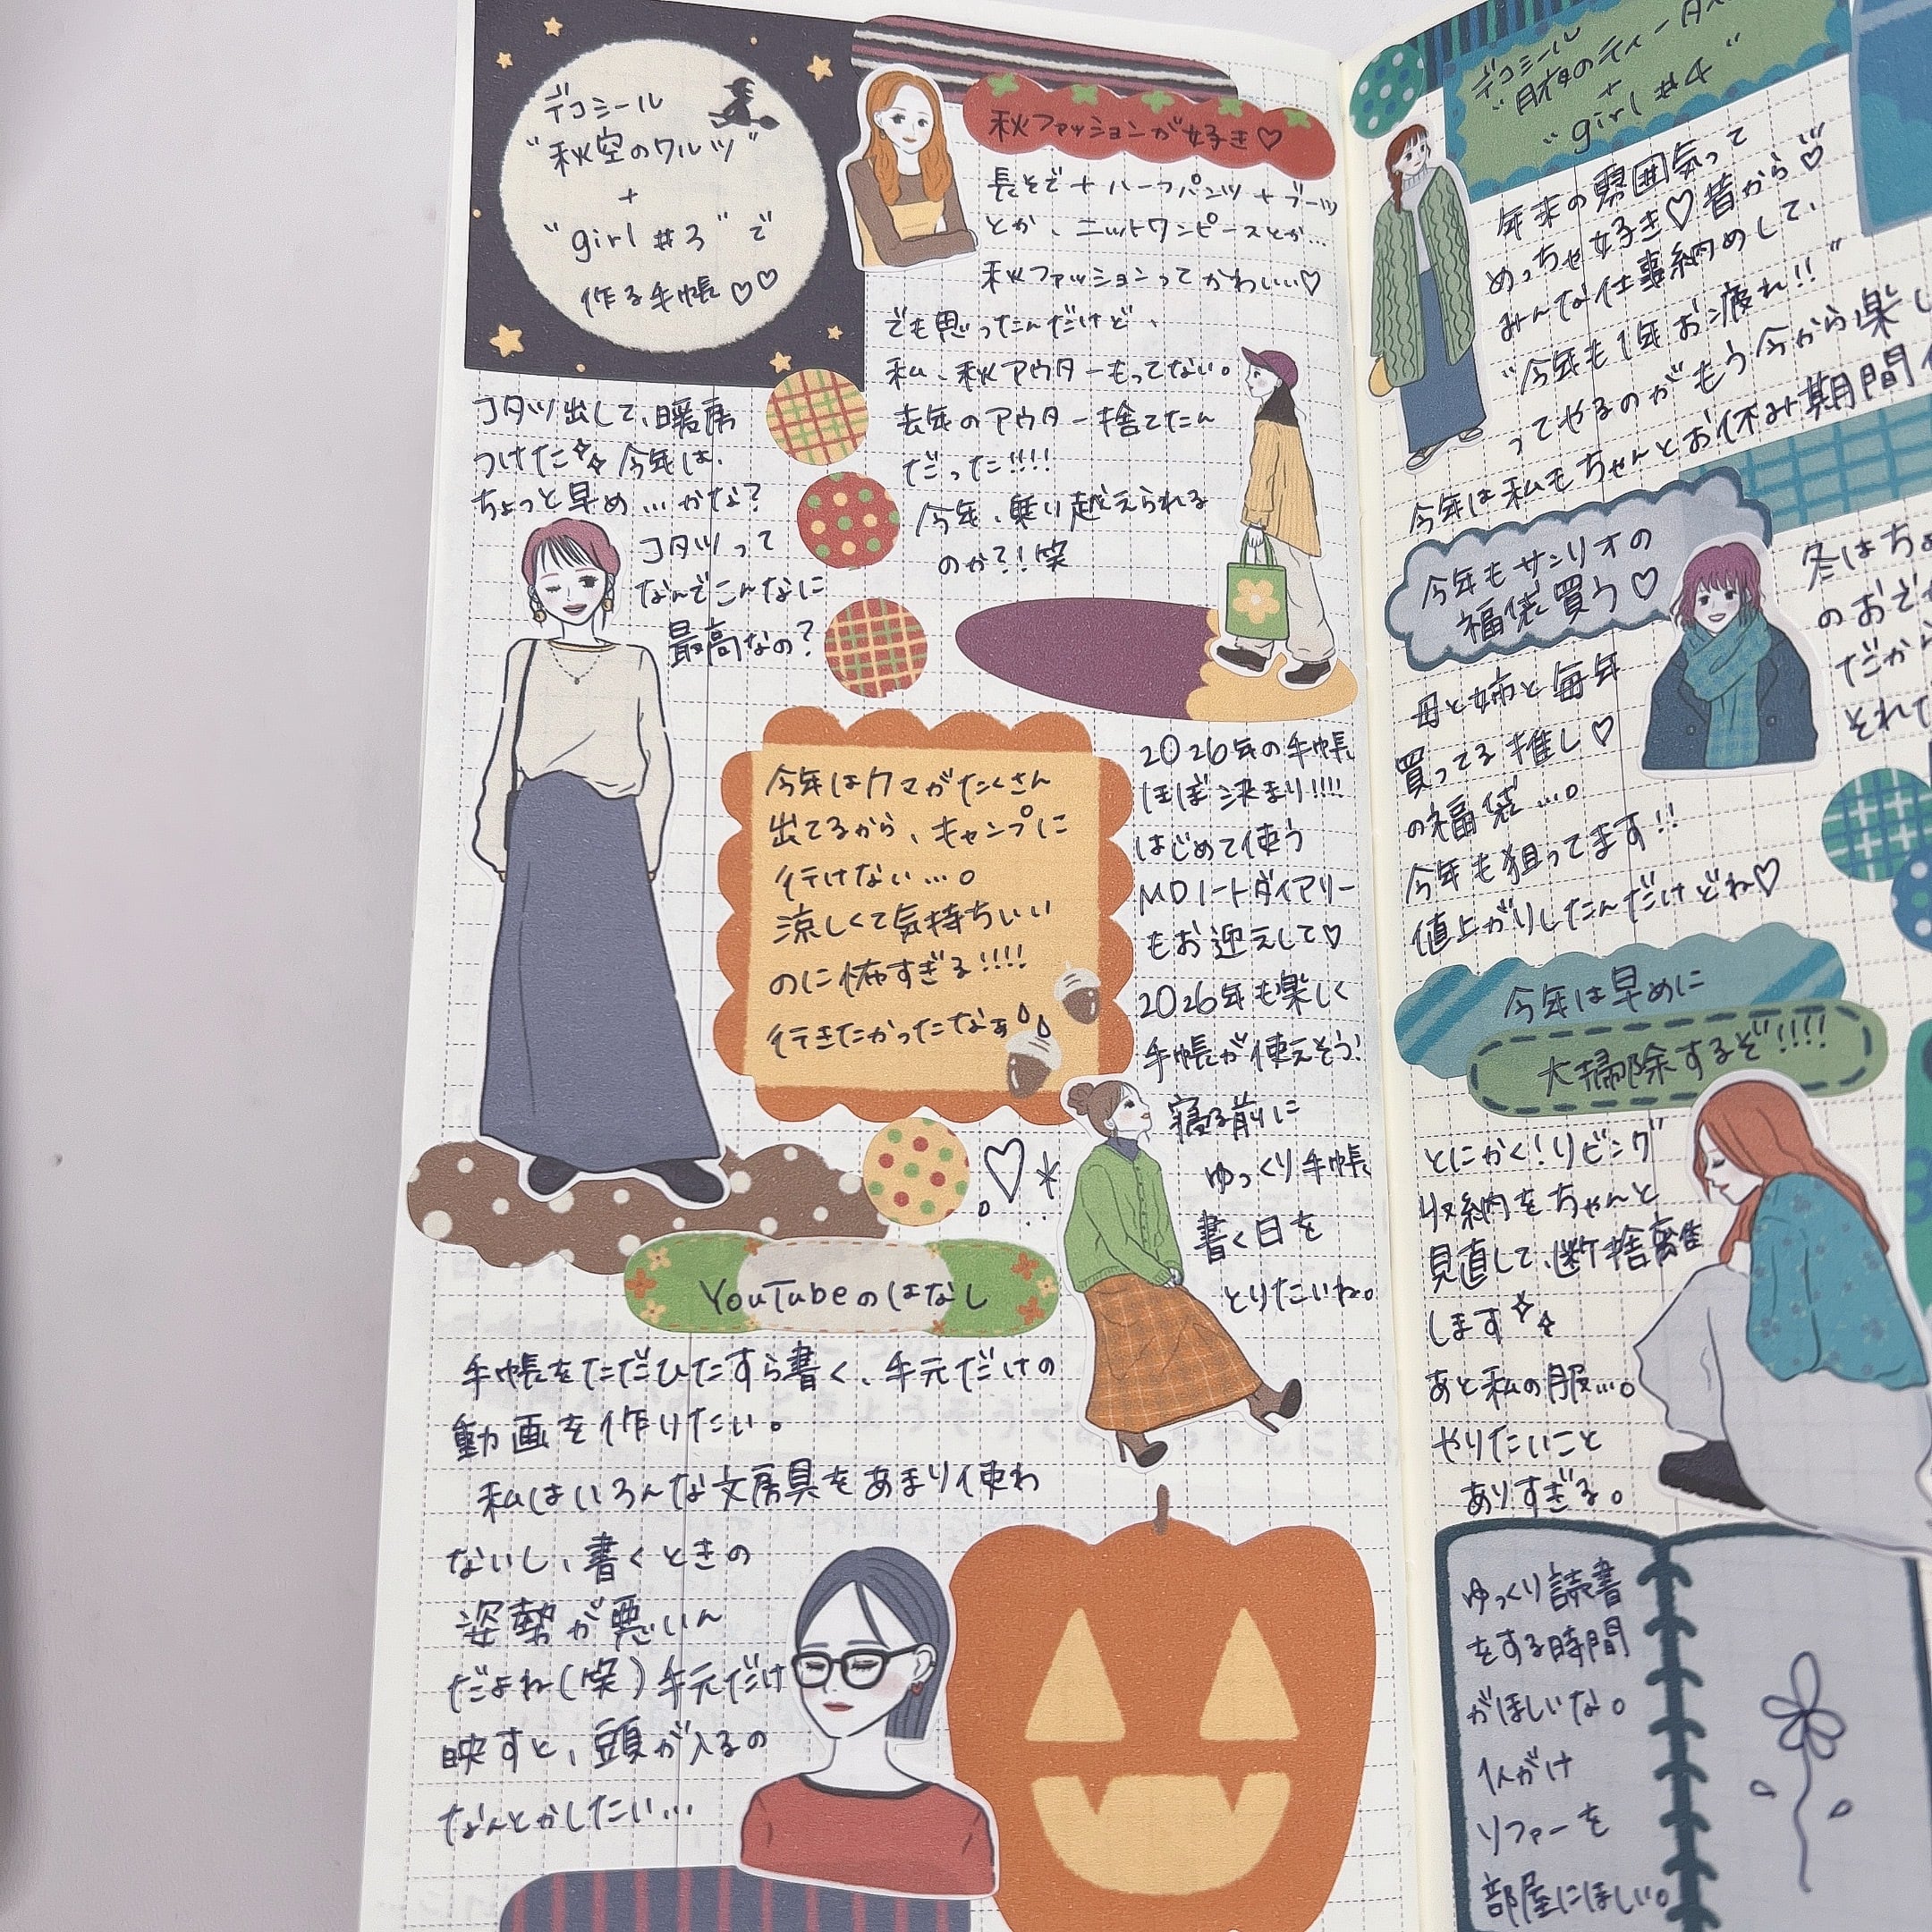 デコミール
"秋空のワルツ"
+
"girl #3"で
作る手帳♡♡
秋ファッションが好き♡
長そで+ハーフパンツ+ブーツ
とか、ニットワンピースとか…
秋ファッションってかわいい♡
でも思ったんだけど、
私、秋アウターもってない。
去年のアウター捨てたん
だった!!!!
今年、乗り越えられる
のか?!笑
コタツ出して、暖房
つけた 今年は、
ちょっと早め…かな?
コタツって
なんでこんなに
最高なの?
今年はクマがたくさん
出てるから、キャンプに
行けない…。
涼しくて気持ちいい
のに怖すぎる!!!!
行きたかったなぁ
2026年の手帳
ほぼ決まり!!!!
はじめて使う
MDノートダイアリー
もお迎えして♡
2026年も楽しく
手帳が使えそう!
寝る前に
ゆっくり手帳
書く日を
とりたいね。
YouTubeのはなし
手帳をただひたすら書く、手元だけの
動画を作りたい。
私はいろんな文房具をあまり使わ
ないし、書くときの
姿勢が悪いん
だよね(笑)手元だけ
映すと、頭が入るの
なんとかしたい…
デコミール
+
"girl #4"
年末の雰囲気って
めっちゃ好き♡昔から♡
みんな仕事納めして、
"今年も1年お疲れ!!"
ってやるのがもう今から楽し
今年は私もちゃんとお休み期間
今年もサンリオの
福袋買う♡
母と姉と毎年
買ってる推し♡
の福袋…。
今年も狙ってます!!
値上がりしたんだけどね♡
冬はちょ
のおで
だから
それ
今年は早めに
大掃除するぞ!!!!
とにかく!リビング
収納をちゃんと
見直して、断捨離
します
あと私の服…。
やりたいこと
ありすぎる。
ゆっくり読書
をする時間
がほしいな。
1人がけ
ソファーを
部屋にほしい。